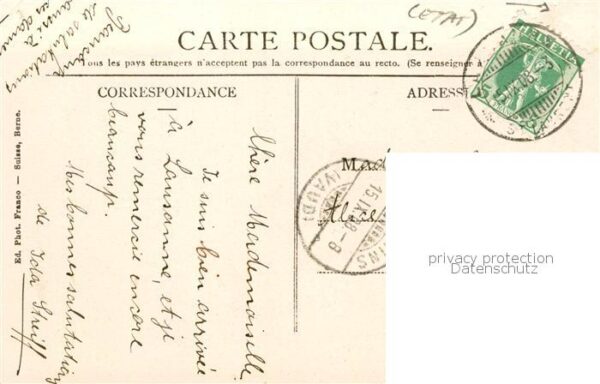 (ETAT)
CARTE POSTALE.
Tous les pays étrangers n'acceptent pas la correspondance au recto. (Se renseigner à
CORRESPONDANCE
ADRESS
HELVETIA
Chère Mademoiselle
Je suis bien arrivée
à Lausanne, et je
vous remercie encore
beaucoup.
Mes bonnes salutations
de Ida Streiff
Ed. Phot. Franco — Suisse, Berne.
Mad
Alice
(VAUD)
15 IX 08 - 6
privacy protection
Datenschutz